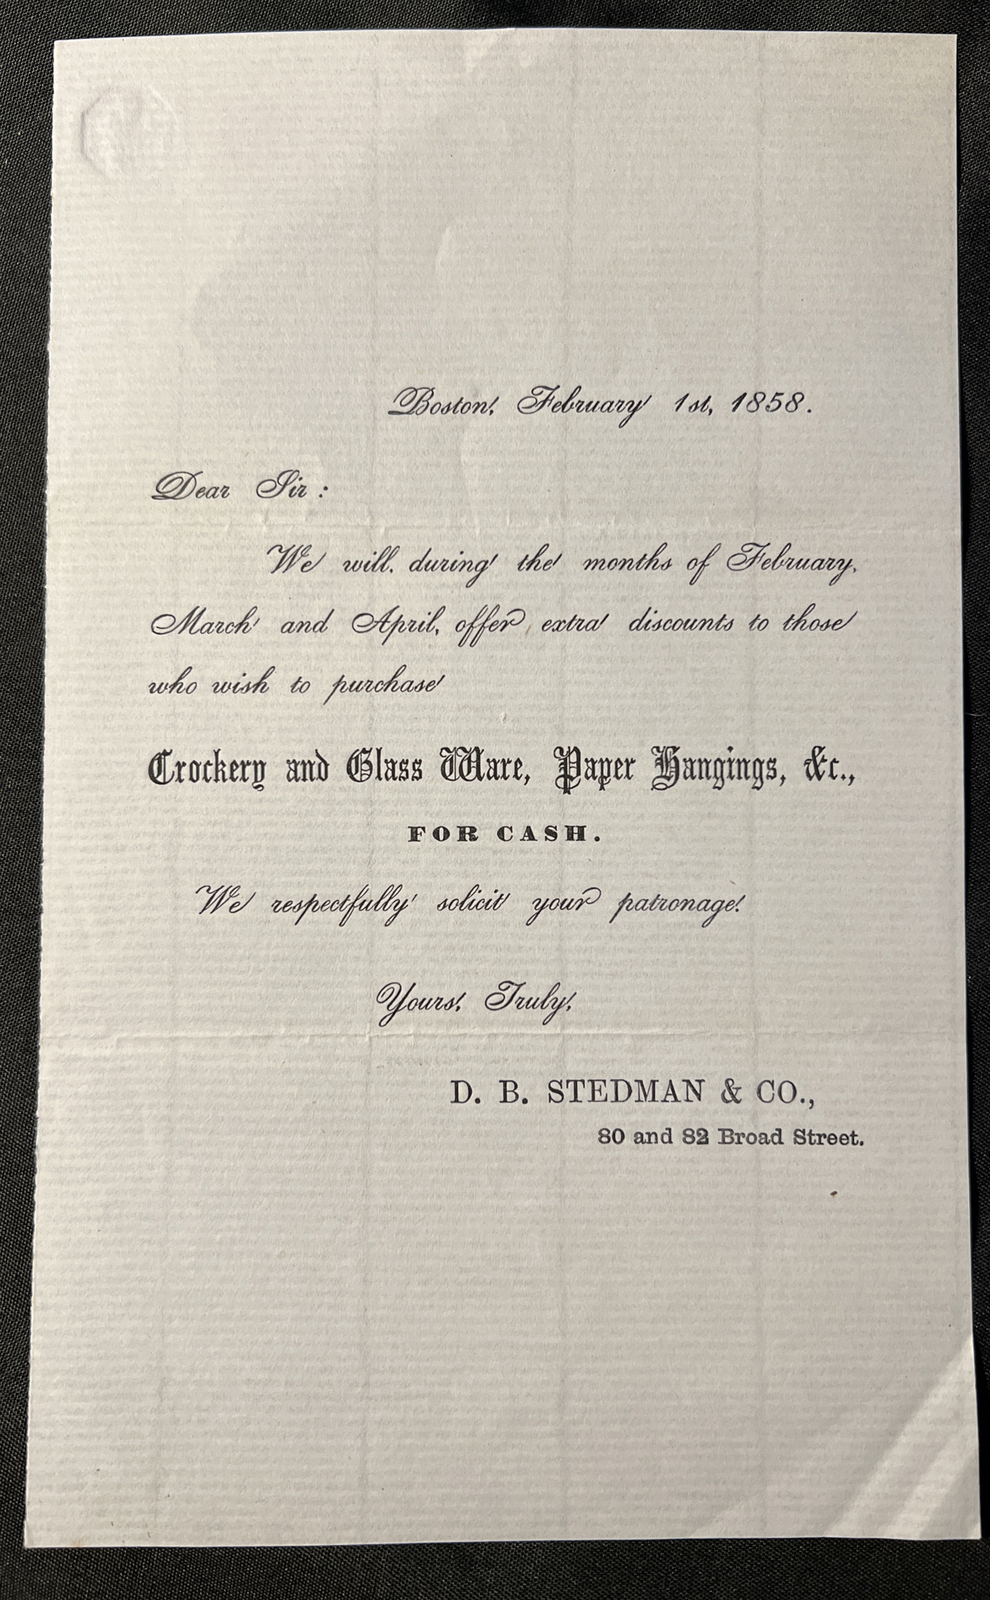 Boston, February 1st, 1858.
Dear Sir:
We will, during the months of February,
March and April, offer extra discounts to those
who wish to purchase
Crockery and Glass Ware, Paper Hangings, &c.,
FOR CASH.
We respectfully solicit your patronage.
Yours, Truly,
D. B. STEDMAN & CO.,
80 and 82 Broad Street.